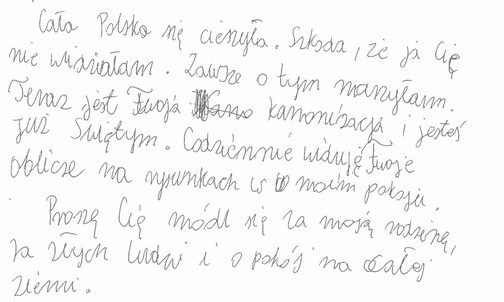 Cała Polska się cieszyła. Szkoda, że ja Cię
nie widziałam. Zawsze o tym marzyłam.
Teraz jest Twoja kanonizacja i jesteś
już Świętym. Codziennie widuję Twoje
oblicze na rysunkach w moim pokoju.
Proszę Cię módl się za moją rodzinę,
za złych ludzi i o pokój na całej
ziemi.